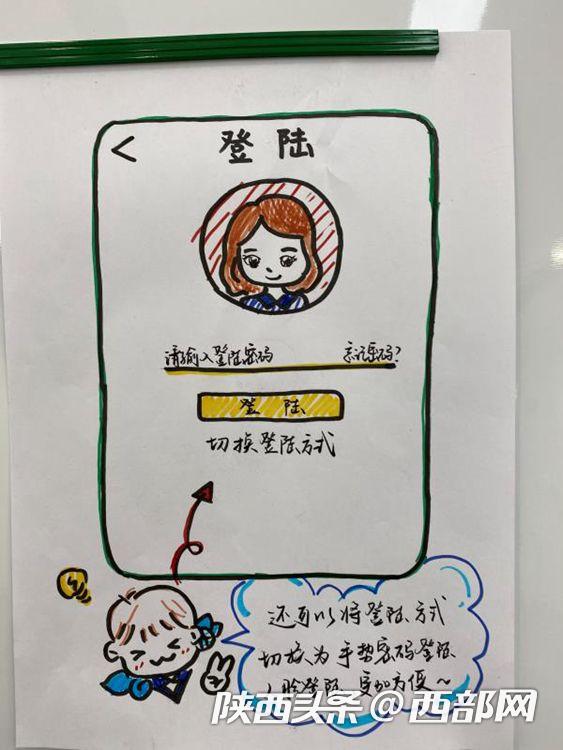 <
登 陆
请输入登陆密码 忘记密码?
登 陆
切换登陆方式
还可以将登陆方式
切换为手势密码登陆
人脸登陆,更加方便~
陕西头条@西部网